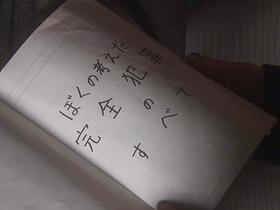 ぼくの考えた
完全犯罪
のすべて